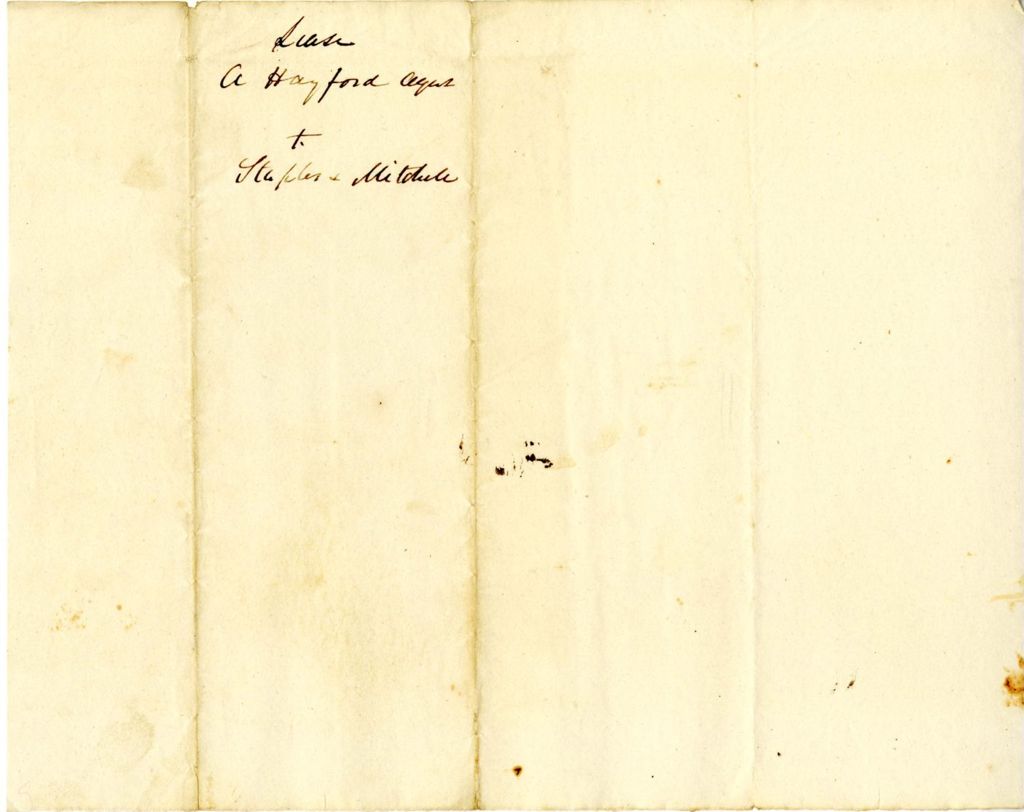 Lease
A Hayford Agent
to
Staples & Mitchell